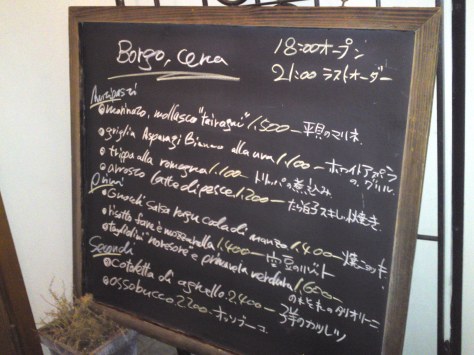 Borgo, cena
18:00オープン
21:00 ラストオーダー
Antipasti
marinato, mollusco "tairagai" 1.500 平貝のマリネ
griglia Asparagi Bianco alla uva 1.100 ホワイトアスパラの、グリル
trippa alla romagna 1.100 トリッパの煮込み
arrosto latte di pesce 1.200 たち焼き
Primi
Gnocchi salsa ragu coda di manzo 1.400
risotto fave e mozzarella 1.400 空豆のリゾット
tagliolini noresore e primavera verdura 1.600 のれそれのタリオリーニ
Secondi
cotoletta di agnello 2400 羊のカツレツ
ossobucco 2200 オッソブーコ